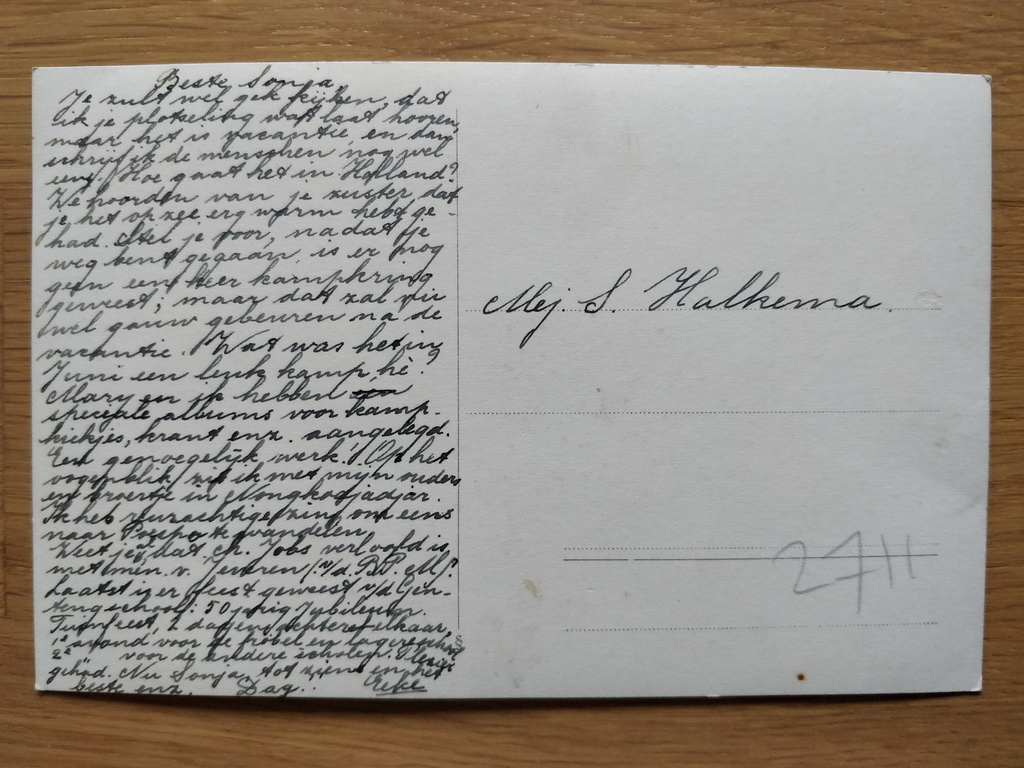 Beste Sonja,
Je zult wel gek kijken, dat
ik je plotseling wat laat hooren,
maar het is vacantie, en dan
schrijf ik de menschen nog wel
eens. Hoe gaat het in Holland?
We hoorden van je zuster dat
je het op zee erg warm hebt ge-
had. Stel je voor, nadat je
weg bent gegaan, is er nog
geen een keer kampkring
geweest; maar dat zal nu
wel gauw gebeuren na de
vacantie. Wat was het in
Juni een leuk kamp, hè?
Mary en ik hebben
speciale albums voor kamp-
kiekjes, krant enz. aangelegd.
Een genoegelijk werk! Op het
oogenblik zit ik met mijn ouders
en broertje in Nongkodjadjar.
Ik heb zin om eens
naar Poespo te wandelen.
Weet jij dat Jobs verloofd is
met v. v/d B.P.M.?
Laatst is er feest geweest v/d Gen-
tengschool: 50 jarig Jubileum.
Tuinfeest, 2 dagen achter elkaar,
1e avond voor de fröbel en lagere school
2e voor de andere scholen.
gehad. Nu Sonja, tot ziens en het
beste enz. Dag!!
Mej. S. Halkema.
2711